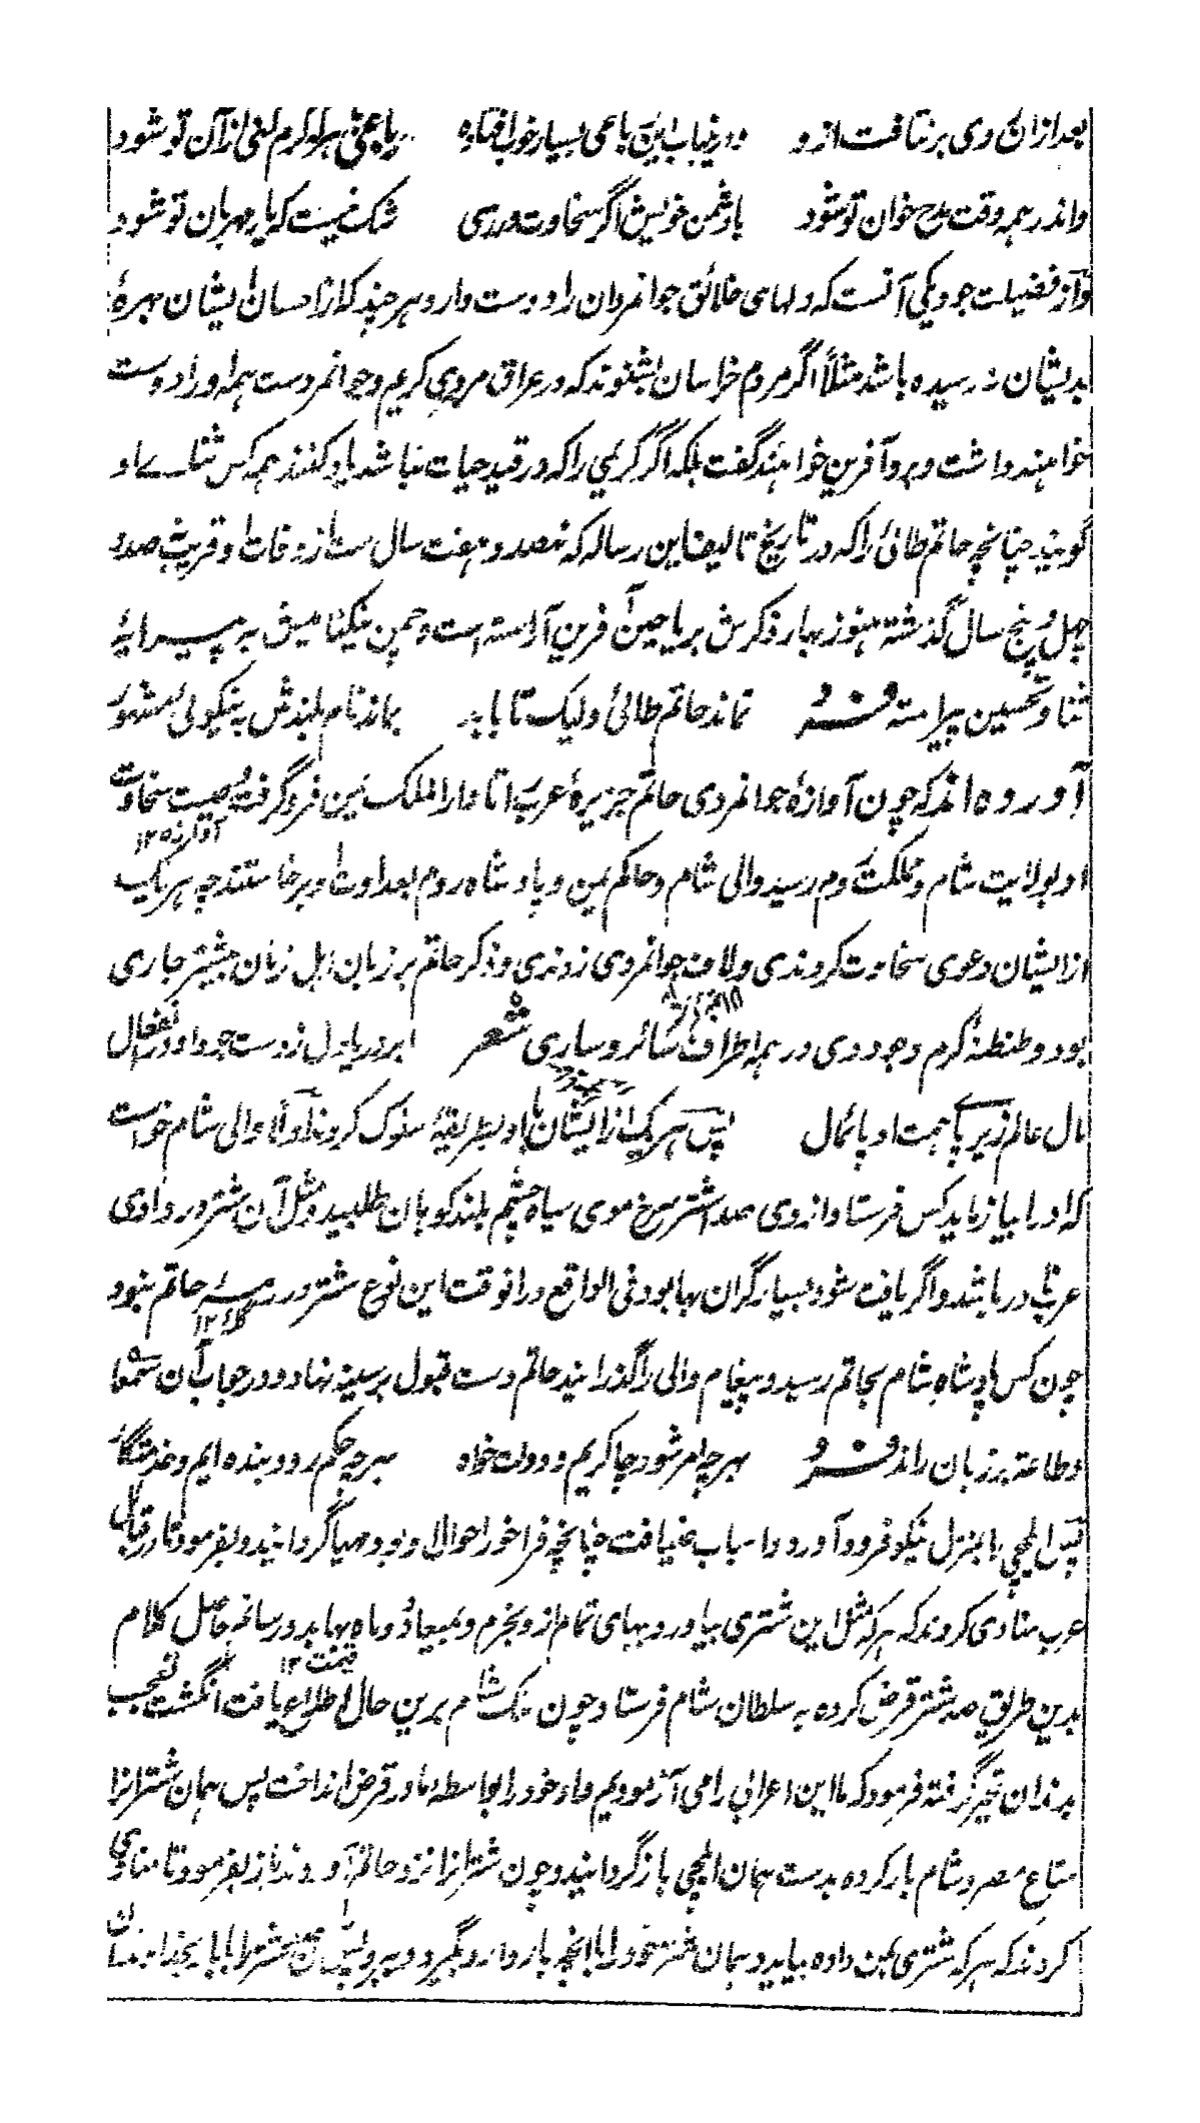 بعد ازان روی بر نتافت ازو در خیاب این رباعی بسیار خوب افتاده رباعی هر کو کرم لغی ازان تو شود
واندر همه وقت مدح خوان تو شود با دشمن خویش اگر سخاوت ورزی شک نیست که یار مهربان تو شود
و از فضیلت جود یکی آنست که دلهای خلائق جوانمردان را دوست دارد هر چند که از احسان ایشان بهرهٔ
بدیشان نرسیده باشد مثلاً اگر مردم خراسان بشنوند که در عراق مردی کریم و جوانمردست همه او را دوست
خواهند داشت و برو آفرین خواهند گفت بلکه اگر کریمی را که در قید حیات نباشد یاد کنند همه کس ثنای او
گویند چنانچه حاتم طائی را که در تاریخ تالیف این رساله که نهصد و هفت سال ست از وفات او قریب صد و
چهل و پنج سال گذشته هنوز بهار ذکرش بریاحین آفرین آراسته است و چمن نیکنامیش به پیرایهٔ
ثنا و تحسین پیراسته فرد نماند حاتم طائی ولیک تا بابد بماند نام بلندش به نیکوئی مشهور
آورده اند که چون آوازهٔ جوانمردی حاتم جزیرهٔ عرب را تا دار الملک یمن فرو گرفت و صیت سخاوت
آوازه ۱۲
او بولایت شام و مملکت روم رسید والی شام و حاکم یمن و پادشاه روم بعداوت او برخاستند چه هر یک
از ایشان دعوی سخاوت کردندی و لاف جوانمردی زدندی و ذکر حاتم بر زبان اهل زمان بیشتر جاری
بود و طنطنهٔ کرم و جود وی در همه اطراف سائر و ساری شعر ابر و دریا دل ز دست جود او در انفعال
مال عالم زیر پای همت او پائمال پس هر یک از ایشان با او بطریقهٔ سلوک کردند اولاً والی شام خواست
که او را بیازماید کس فرستاد و از وی صد اشتر سرخ موی سیاه چشم بلند کوهان طلبید و مثل آن شتر در وادی
عرب نادر باشد و اگر یافت شود بسیار گران بها بود فی الواقع در آنوقت این نوع شتر در رمهٔ حاتم نبود
گله ۱۲
چون کس پادشاه شام بحاتم رسید و پیغام والی را گذرانید حاتم دست قبول بر سینه نهاد و در جواب آن سمعا
و طاعة بر زبان راند فرد بهر چه امر شود چاکریم و دولت خواه بهر چه حکم رود بنده ایم و خدمتگار
پس ایلچی را بمنزل نیکو فرود آورد و اسباب ضیافت چنانچه فراخور احوال او بود مهیا گردانید و بفرمود تا در قبائل
عرب منادی کردند که هر که مثل این شتری بیاورد و بهای تمام ازو بخرم و بمیعاد دو ماه بها بدو رسانم حاصل کلام
قیمت ۱۲
بدین طریق صد شتر قرض کرده به سلطان شام فرستاد چون ملک شام برین حال اطلاع یافت انگشت تعجب
بدندان تحیر گرفته فرمود که ما این اعرابی را می آزمودیم و او خود را بواسطهٔ ما در قرض انداخت پس همان شترانرا
متاع مصر و شام بار کرده بدست همان ایلچی باز گردانید و چون شترانرا نزد حاتم آوردند باز بفرمود تا منادی
کردند که هر که شتری بمن داده بیاید و همان شتر خود را با انچه بار دارد بگیرد و ببرد پس آن صد شتر را با بار بخداوندان